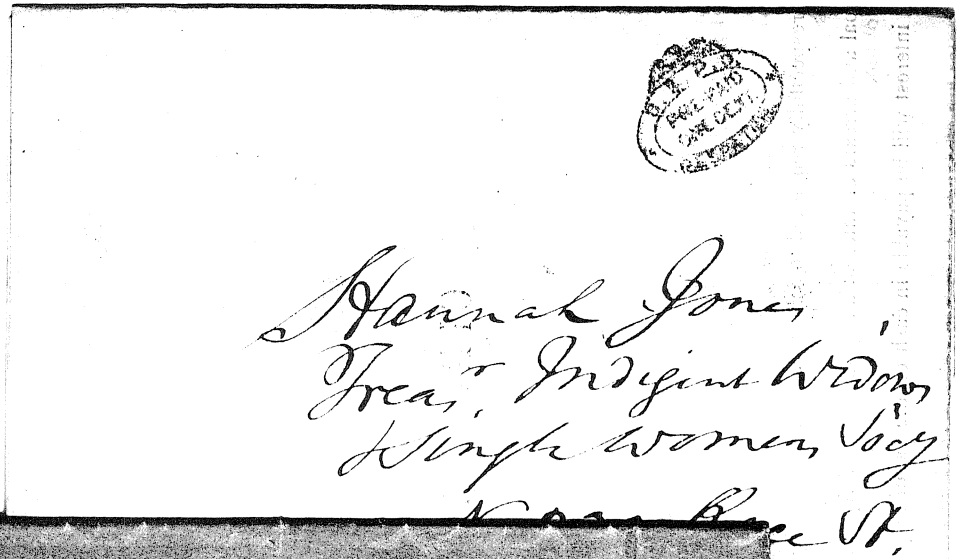 U.S.P.D.
PRE-PAID
ONE CENT
Hannah Jones
Treasr. Indigent Widows'
& Single Women's Socy
Race St.